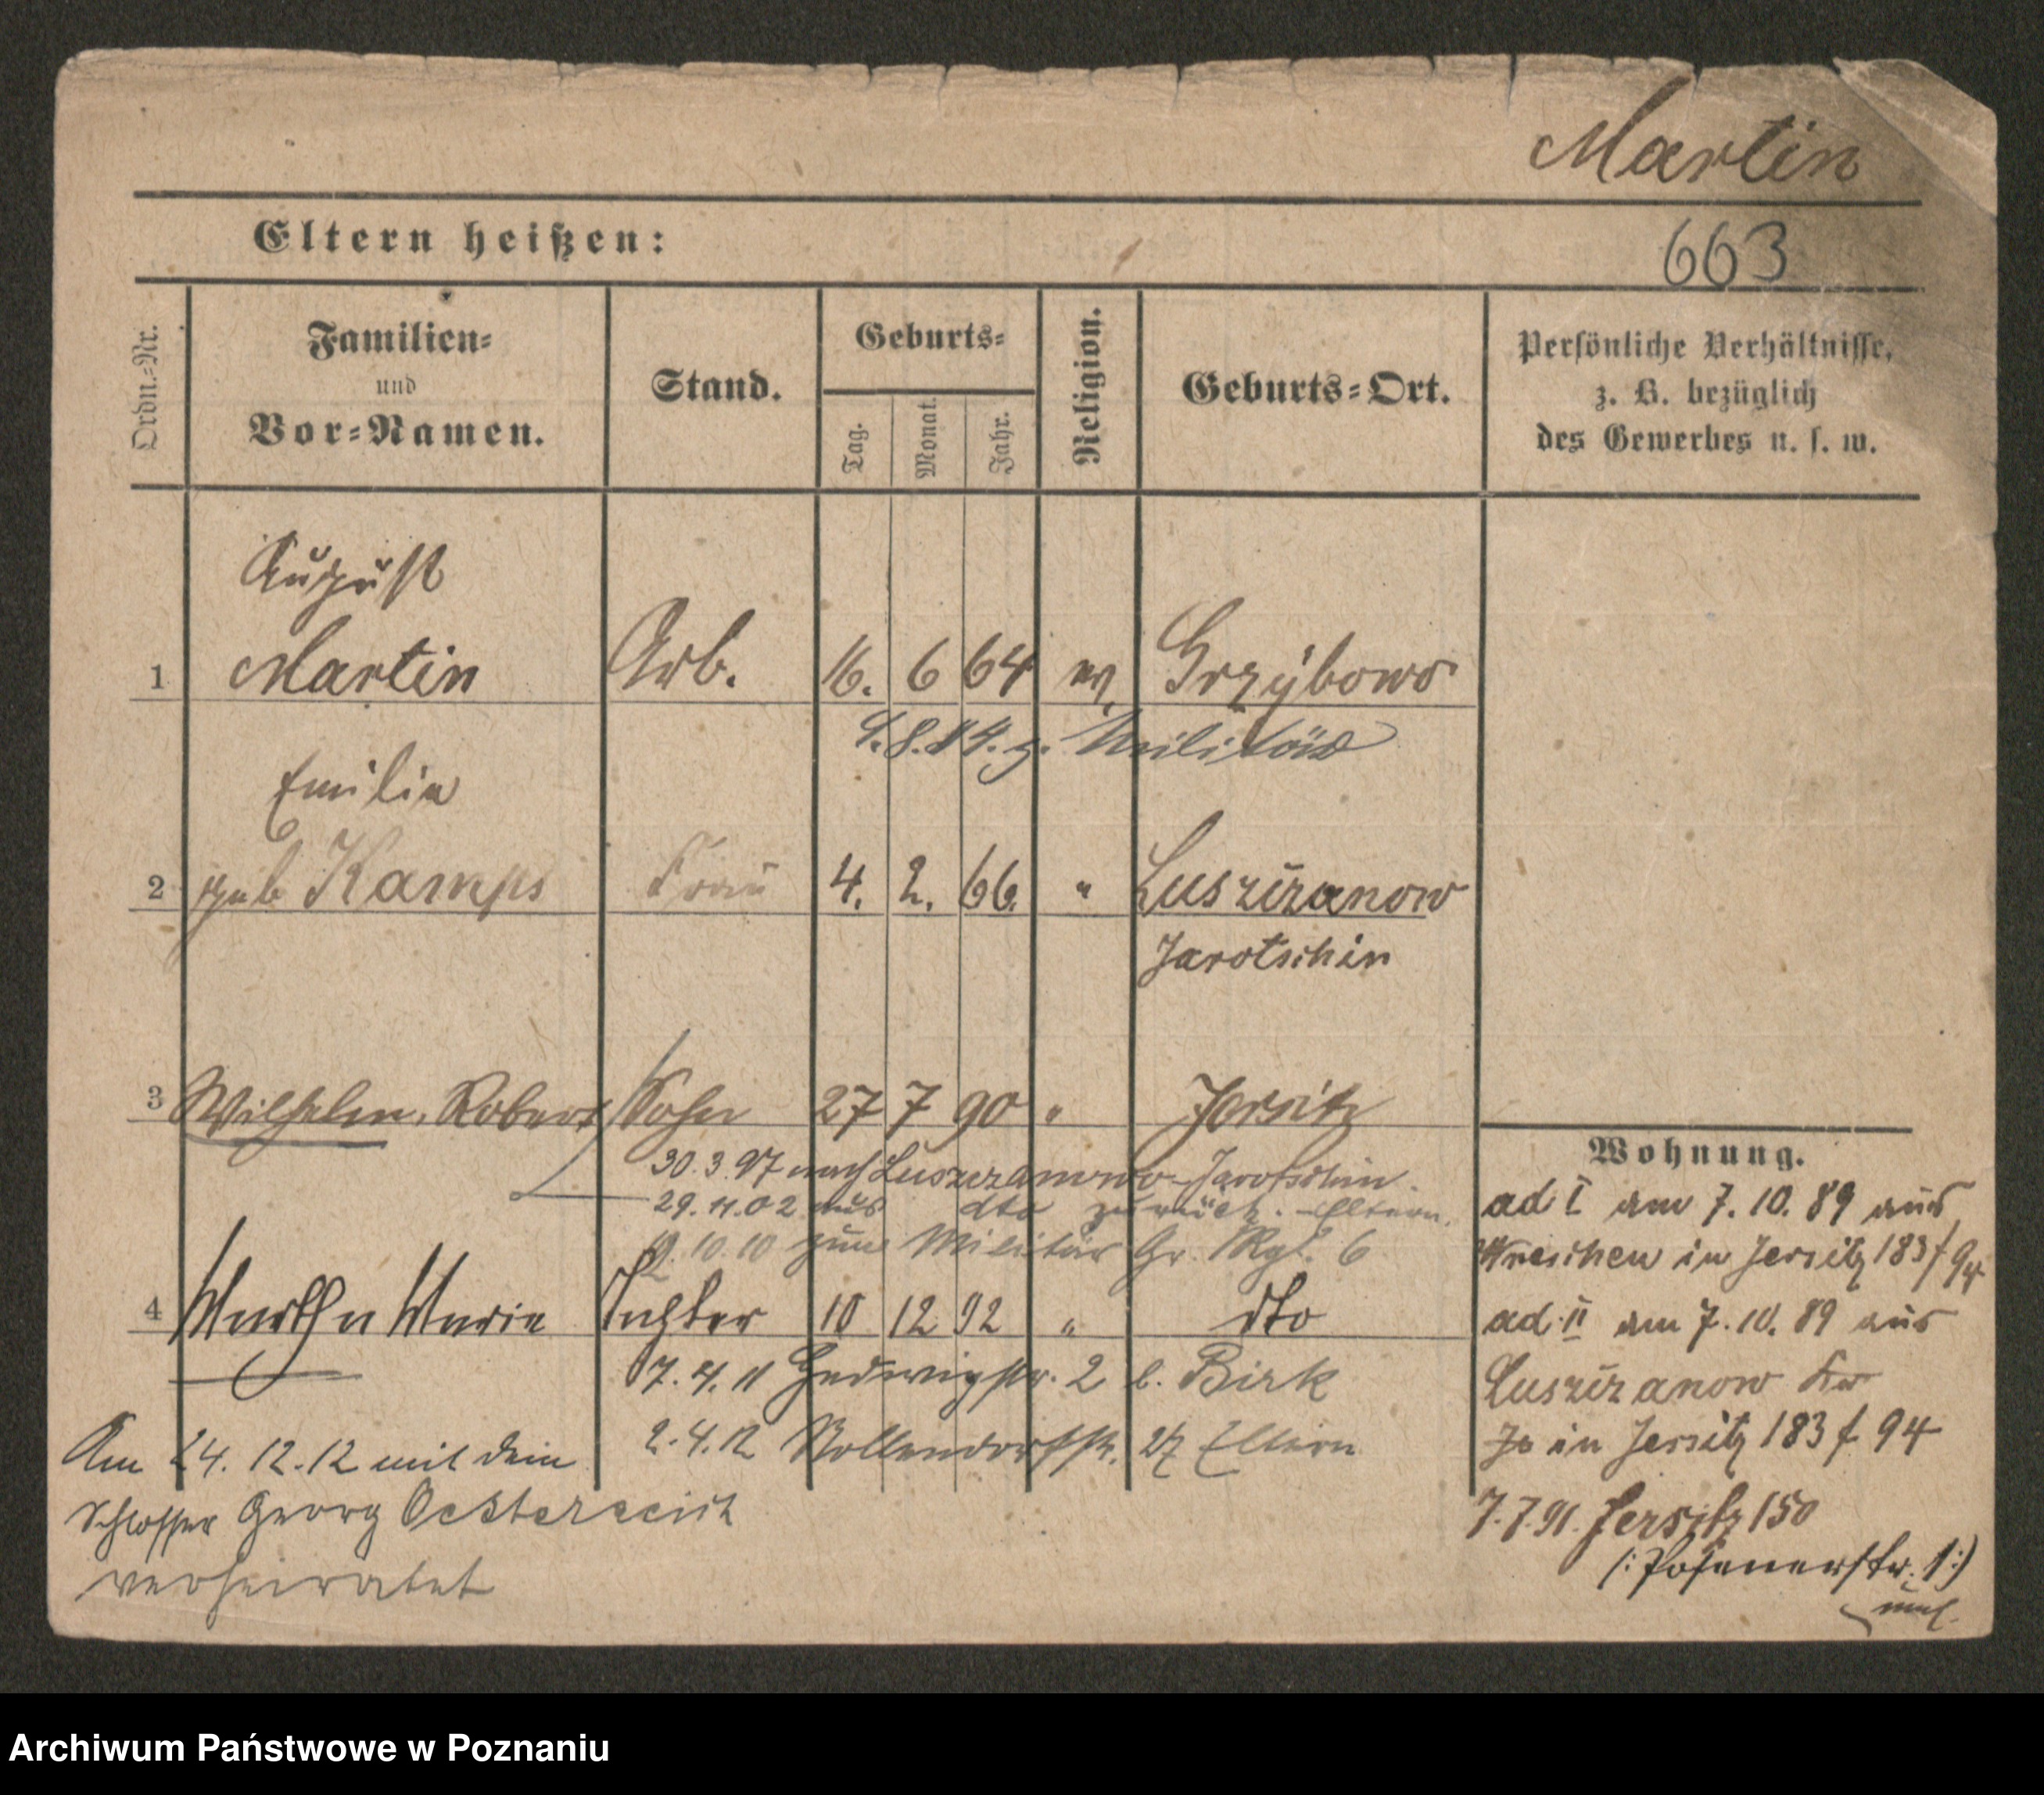 Martin
Eltern heißen:
663
Ordn.-Nr.
Familien-
und
Vor-Namen.
Stand.
Geburts-
Tag.
Monat.
Jahr.
Religion.
Geburts-Ort.
Persönliche Verhältnisse,
z. B. bezüglich
des Gewerbes u. s. w.
August
1 Martin Arb. 16. 6 64 ev. Grzybowo
4.8.84. z. Militär
Emilie
2 geb Kamps Frau 4. 2. 66. " Luszczanow
Jarotschin
3 Wilhelm, Robert Sohn 27 7 90 " Jersitz
30.3.97 nach Luszczanowo-Jarotschin.
29.11.02 aus dto zurück. Eltern.
10.10 zum Militär Gr. Rgt. 6
4 Martha Maria Tochter 10 12 92 " dto
17.4.11 Hedwigstr. 2 b. Birk
2.4.12 Nollendorfstr. 27 Eltern
Am 24.12.12 mit dem
Schlosser Georg Oestereich
verheiratet
Wohnung.
ad I am 7.10.89 aus
Wreschen in Jersitz 183 f 94
ad II am 7.10.89 aus
Luszczanow Kr
Ja in Jersitz 183 f 94
7.7.91. Jersitz 150
(: Posenerstr. 1 :)
Archiwum Państwowe w Poznaniu